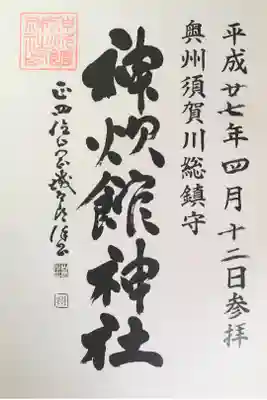 平成廿七年四月十二日参拝
奥州須賀川総鎮守
神炊館神社
正四位